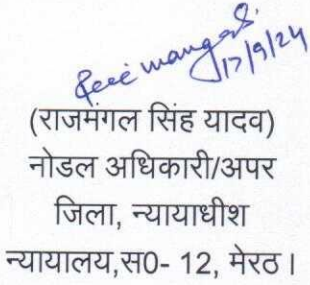 17/9/24
(राजमंगल सिंह यादव)
नोडल अधिकारी/अपर
जिला, न्यायाधीश
न्यायालय,स0- 12, मेरठ।